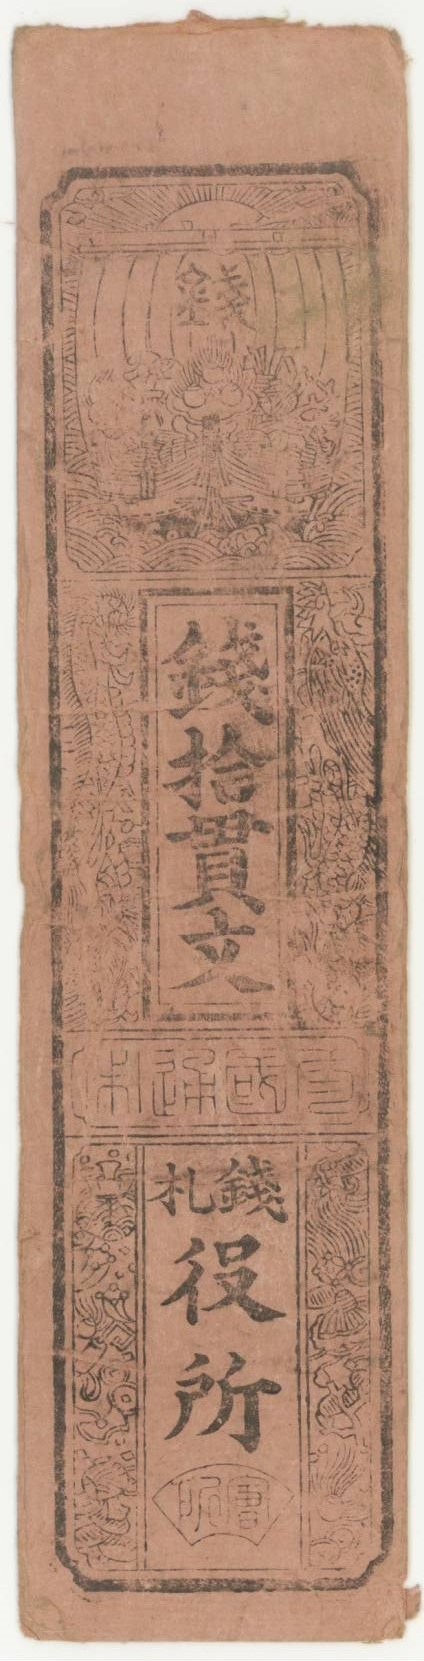 錢
錢拾貫文
國通
錢札
役所